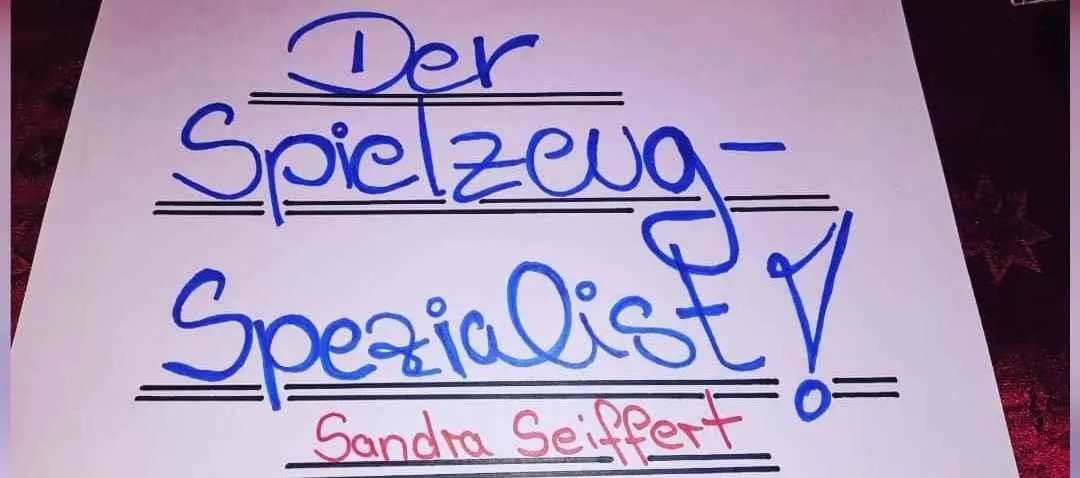 Der
Spielzeug-
Spezialist!
Sandra Seiffert